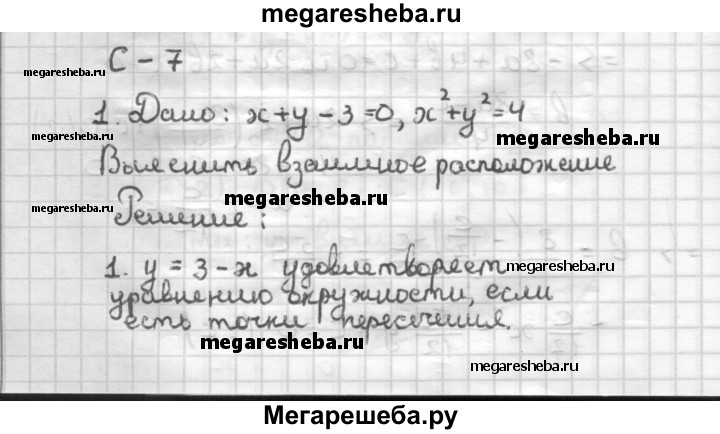 megaresheba.ru
С - 7
megaresheba.ru
1. Дано: x+y-3=0, x²+y²=4
megaresheba.ru
Выяснить взаимное расположение
megaresheba.ru
megaresheba.ru
Решение:
1. y = 3 - x удовлетворяет
megaresheba.ru
уравнению окружности, если
есть точки пересечения.
megaresheba.ru
megaresheba.ru
Мегарешеба.ру